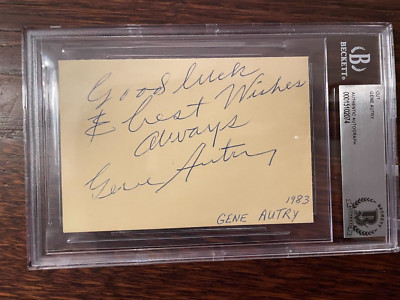 Good luck
& best Wishes
always
Gene Autry
1983
GENE AUTRY
BECKETT
CUT
GENE AUTRY
AUTHENTIC AUTOGRAPH